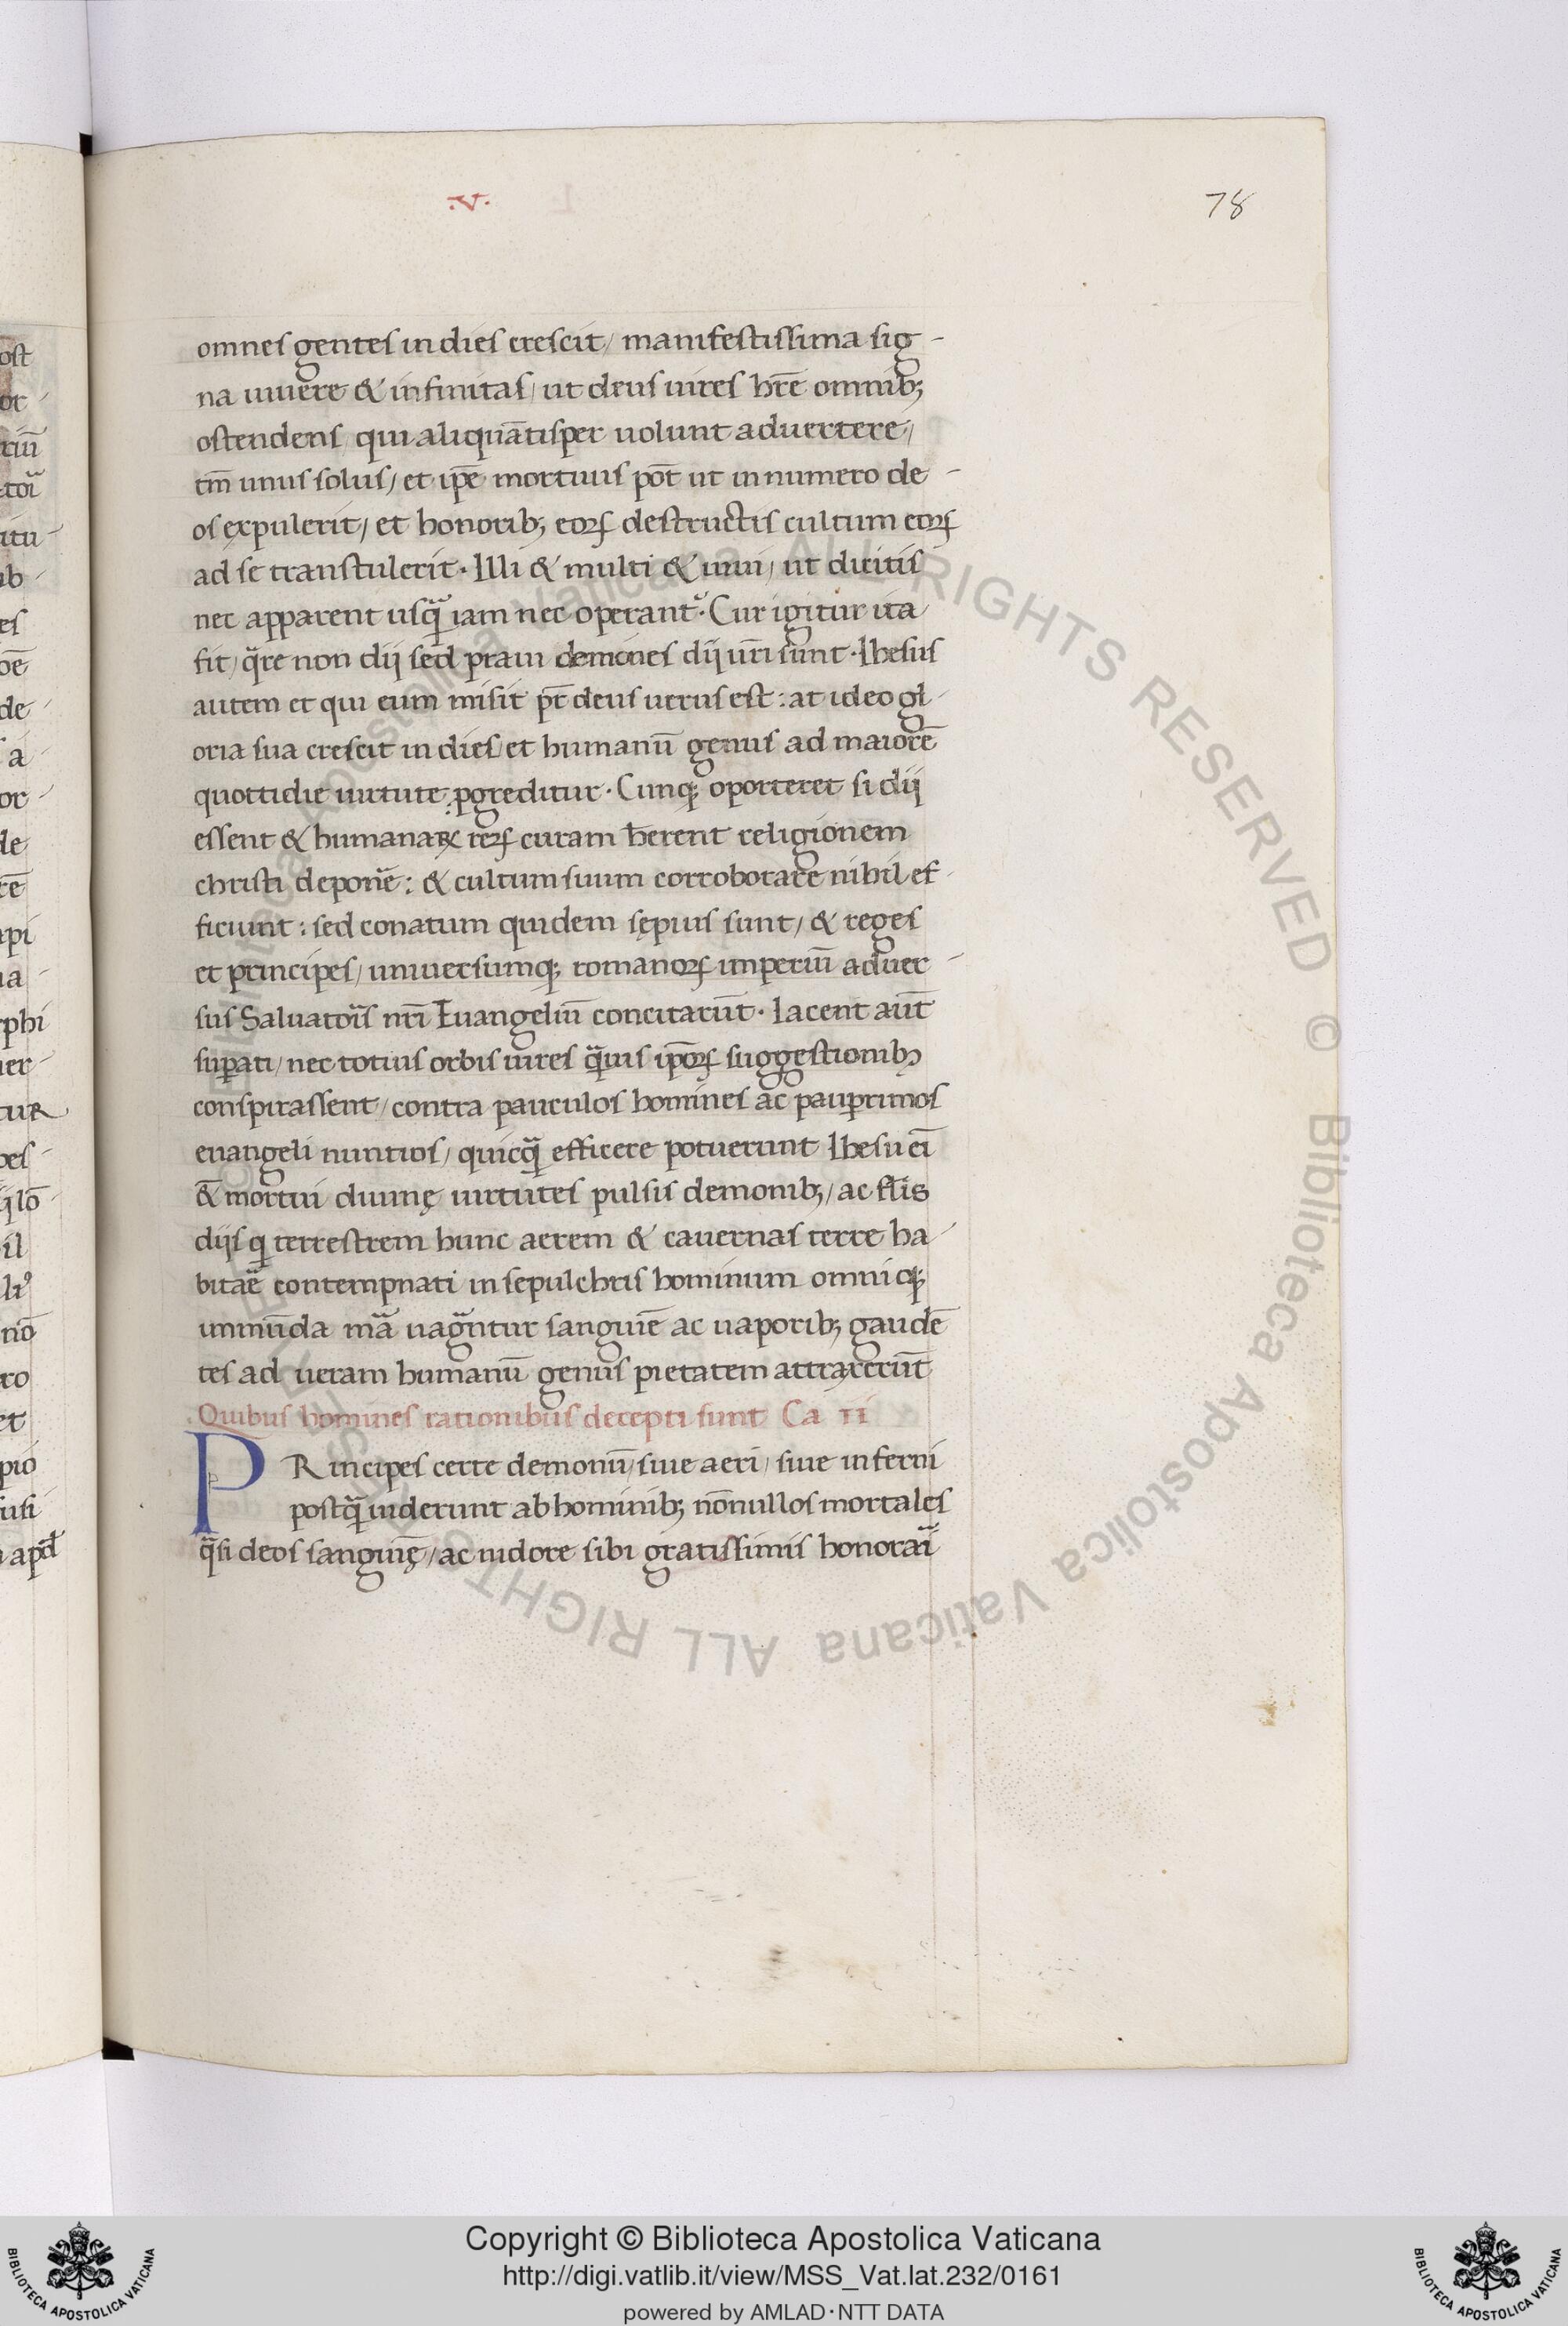 .v.
78
omnes gentes in dies crescit / manifestissima sig-
na uiuere & infinitas / ut deus uires hr̄e omnib;
ostendens / qui aliquātisper uolunt aduertere /
tm̄ unus solus / et ip̄e mortuus pōt ut innumero de-
os expulerit / et honorib; eoꝝ destructis cultum eoꝝ
ad se transtulerit. Illi & multi & uiui / ut dicitis
nec apparent usq̄ iam nec operantᷣ. Cur igitur ita
fit / q̄re non dij sed praui demones dij ur̄i sunt. Ihesus
autem et qui eum misit pr̄ deus uerus est : at ideo gl-
oria sua crescit in dies / et humanū genus ad maiorē
quottidie uirtute ꝓgreditur. Cunq; oporteret si dij
essent & humanaꝝ reꝝ curam hērent religionem
christi deponēᷣ : & cultum suum corroborare nihil ef-
ficiunt : sed conatum quidem sępius sunt / & reges
et principes / uniuersumq; romanoꝝ imperiū aduer-
sus Saluatoris nr̄i Euangeliū concitarūt. Iacent aūt
suꝑati / nec totius orbis uires q̄uis ip̄oꝝ suggestionib;
conspirassent / contra pauculos homines ac pauꝑrimos
euangeli nuntios / quicq̄ efficere potuerunt Ihesu ei
&̄ mortui diuinę uirtutes pulsis demonib; / ac fl̄is
dijs q terrestrem hunc aerem & cauernas terre ha-
bitāe contempnati in sepulchris hominum omniq;
inmūda mā uagntur sanguiē ac uaporib; gaudē
tes ad ueram humanū genus pietatem attraxerūt
Quibus homines rationibus decepti sunt Ca II
PRincipes certe demonū / siue aeri / siue inferni
postq̄ uiderunt ab hominib; nōnullos mortales
q̄si deos sanguię / ac nidore sibi gratissimis honorai
Copyright © Biblioteca Apostolica Vaticana
http://digi.vatlib.it/view/MSS_Vat.lat.232/0161
powered by AMLAD·NTT DATA